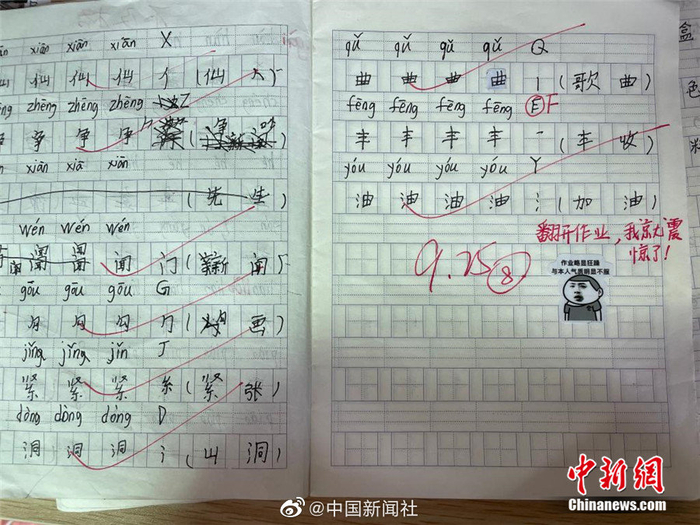 xiān xiān xiān xiān X
仙 仙 仙 仙 亻(仙人)
zhēng zhēng zhēng zhēng Z
争 争 争 争
xiān xiā xiān
(先生)
wén wén wén
闻 闻 闻 门(新闻)
gōu gōu gōu G
勾 勾 勾 勹(勾画)
jǐng jǐng jǐn J
紧 紧 紧 糸(紧张)
dòng dòng dòng D
洞 洞 洞 氵(山洞)
qǔ qǔ qǔ qǔ Q
曲 曲 曲 曲 丨(歌曲)
fēng fēng fēng fēng E F
丰 丰 丰 丰 一(丰收)
yóu yóu yóu yóu Y
油 油 油 油 氵(加油)
翻开作业，我就震
惊了!
9.25 8
作业略显狂躁
与本人气质明显不服
中新网
Chinanews.com
@中国新闻社